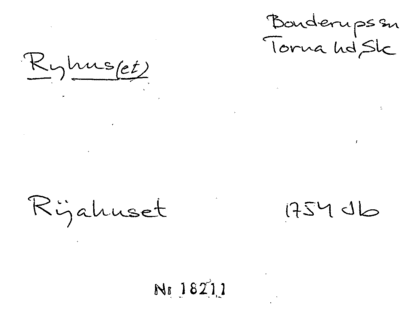 Bonderups sn
Torna hd, Sk
Ryhus(et)
Rÿahuset 1754 Jb
Nr 18211